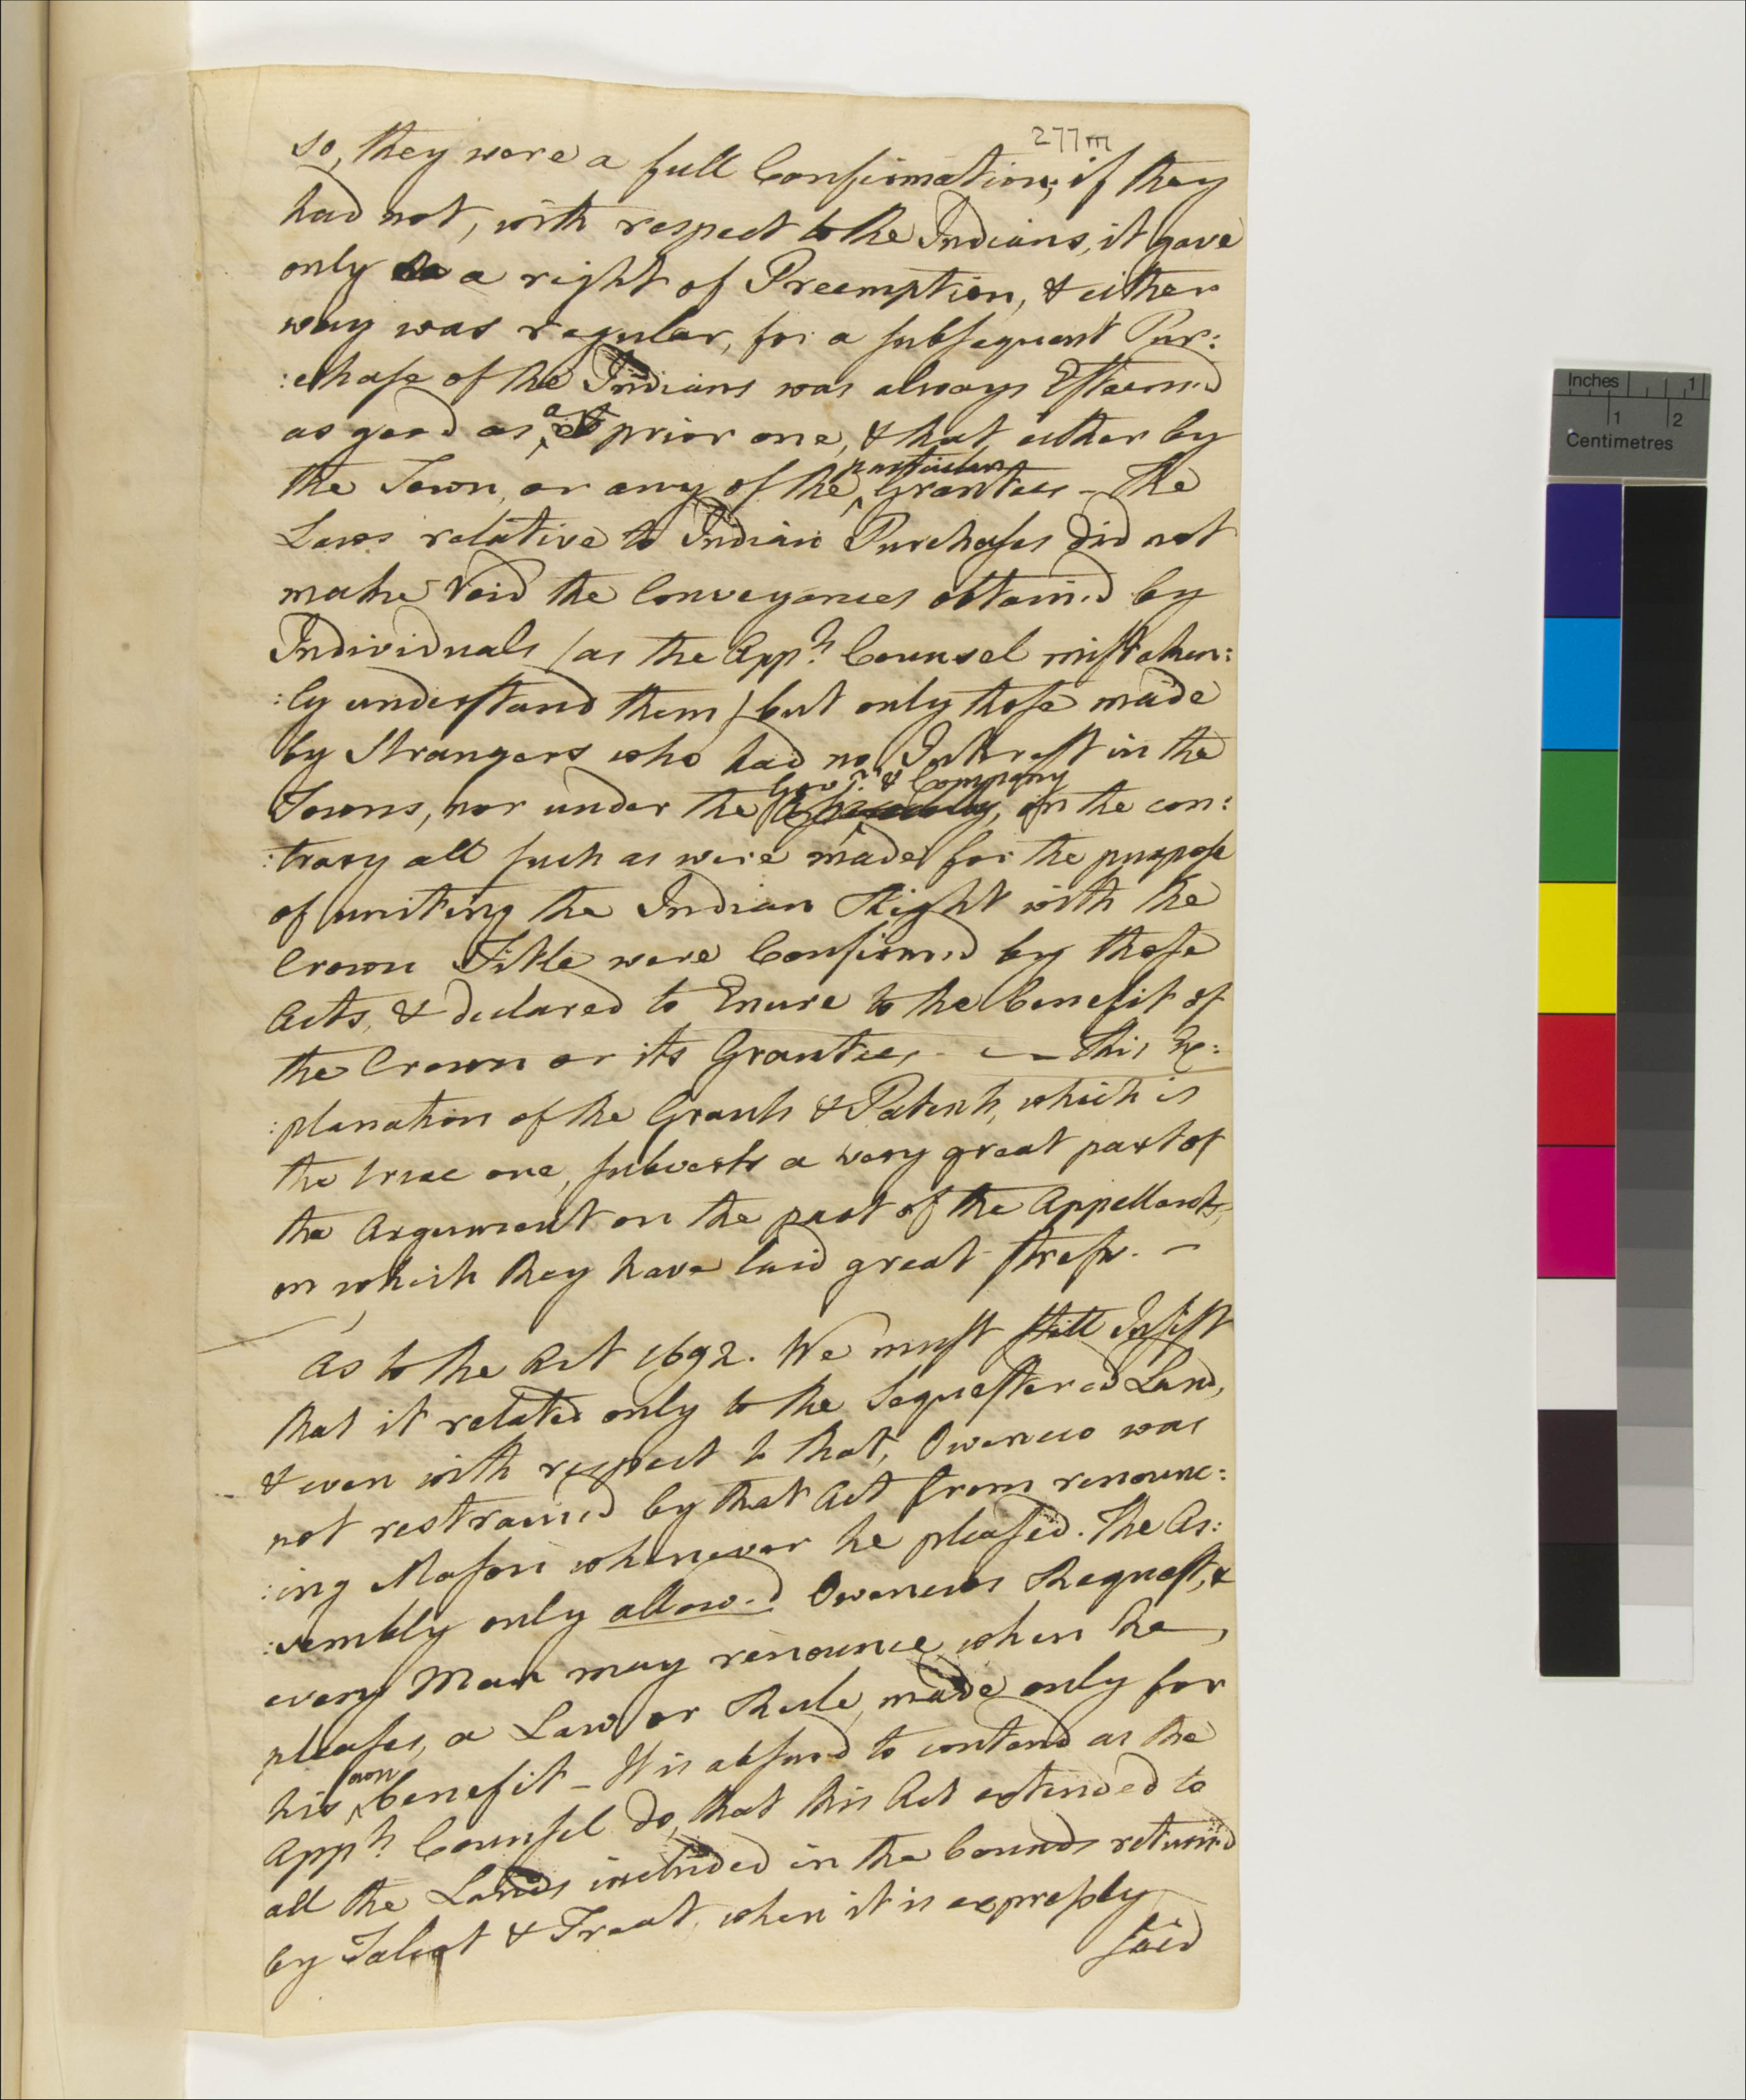 277m
so, they were a full Confirmation; if they
had not, with respect to the Indians, it gave
only a right of Preemption, & either
way was regular, for a subsequent Pur:
:chase of the Indians was always Esteem'd
as good as a prior one, & that either by
the Town, or any of the particular Grantees – The
Laws relative to Indian Purchases did not
make Void the Conveyances obtain'd by
Individuals (as the Appts Counsel mistaken:
:ly understand them) but only those made
by Strangers who had no Interest in the
Towns, nor under the Govr & Company, on the con:
:trary all such as were made for the purpose
of uniting the Indian Right with the
Crown Title were Confirm'd by those
Acts, & declared to Enure to the benefit of
the Crown or its Grantees – This Ex:
:planation of the Grants & Patents, which is
the true one, subverts a very great part of
the Argument on the part of the Appellants,
on which they have laid great stress. –
As to the Act 1692. We must still Insist
that it related only to the Sequestered Land,
& even with respect to that, Oweneco was
not restrained by that Act from renounc:
:ing Mason whenever he pleased. The As:
:sembly only allow'd Owenecos Request, &
every Man may renounce, when he
pleases, a Law or Rule, made only for
his own benefit – It is absurd to contend as the
Appts Counsel do, that this Act extended to
all the Lands included in the bounds return'd
by Talcot & Treat, when it is expressly
said